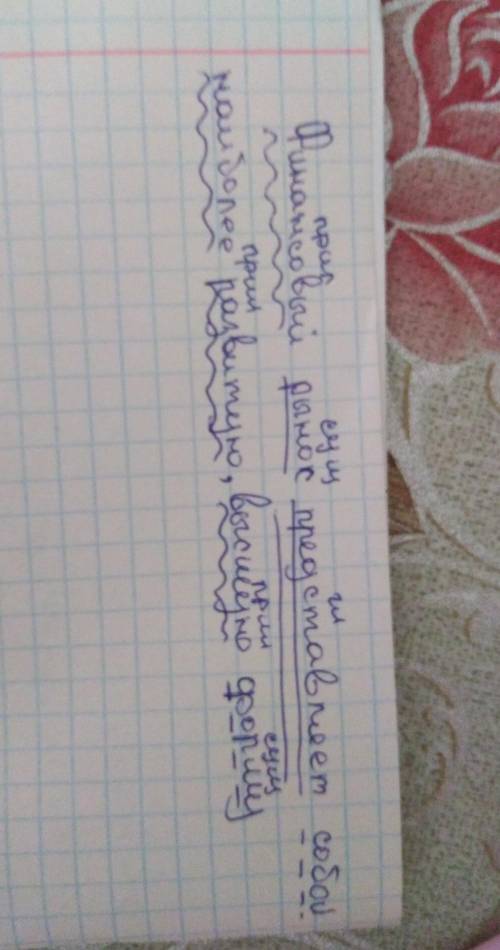 прил сущ гл
Финансовый рынок представляет собой
прил прил сущ
наиболее развитую, высшую форму